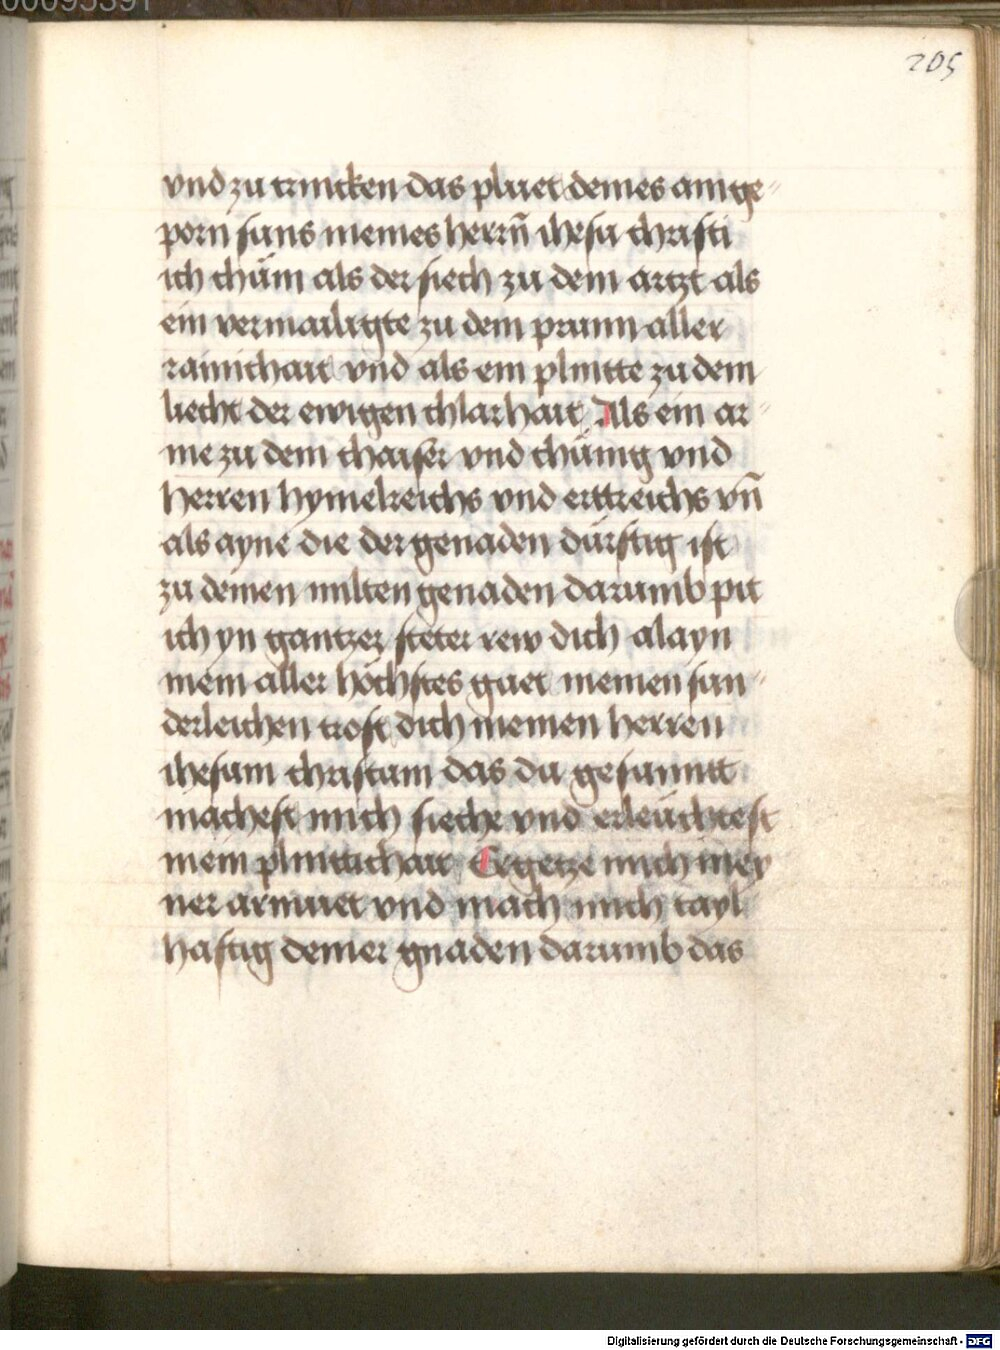 205
vnd zu trincken das pluet deines ainge-
porn suns meines herrn̄ ihesu christi
ich chüm als der siech zu dem artzt als
ein vermailigte zu dem prunn aller
rainichait vnd als ein plintte zu dem
liecht der ewigen chlarhait Als ein ar-
me zu dem chaiser vnd chünig vnd
herren hymelreichs vnd erttreichs vn̄
als ayne die der genaden dürftig ist
zu deinen milten genaden darumb pit
ich yn gantzer steter rew dich alayn
mein aller höchstes guet meinen sun-
derleichen trost dich meinen herren
ihesum christum das du gesunntt
machest mich sieche vnd erleüchtest
mein plinttichait Ergetze mich mey
ner armuet vnd mach mich tayl
haftig deiner gnaden darumb das
Digitalisierung gefördert durch die Deutsche Forschungsgemeinschaft - DFG